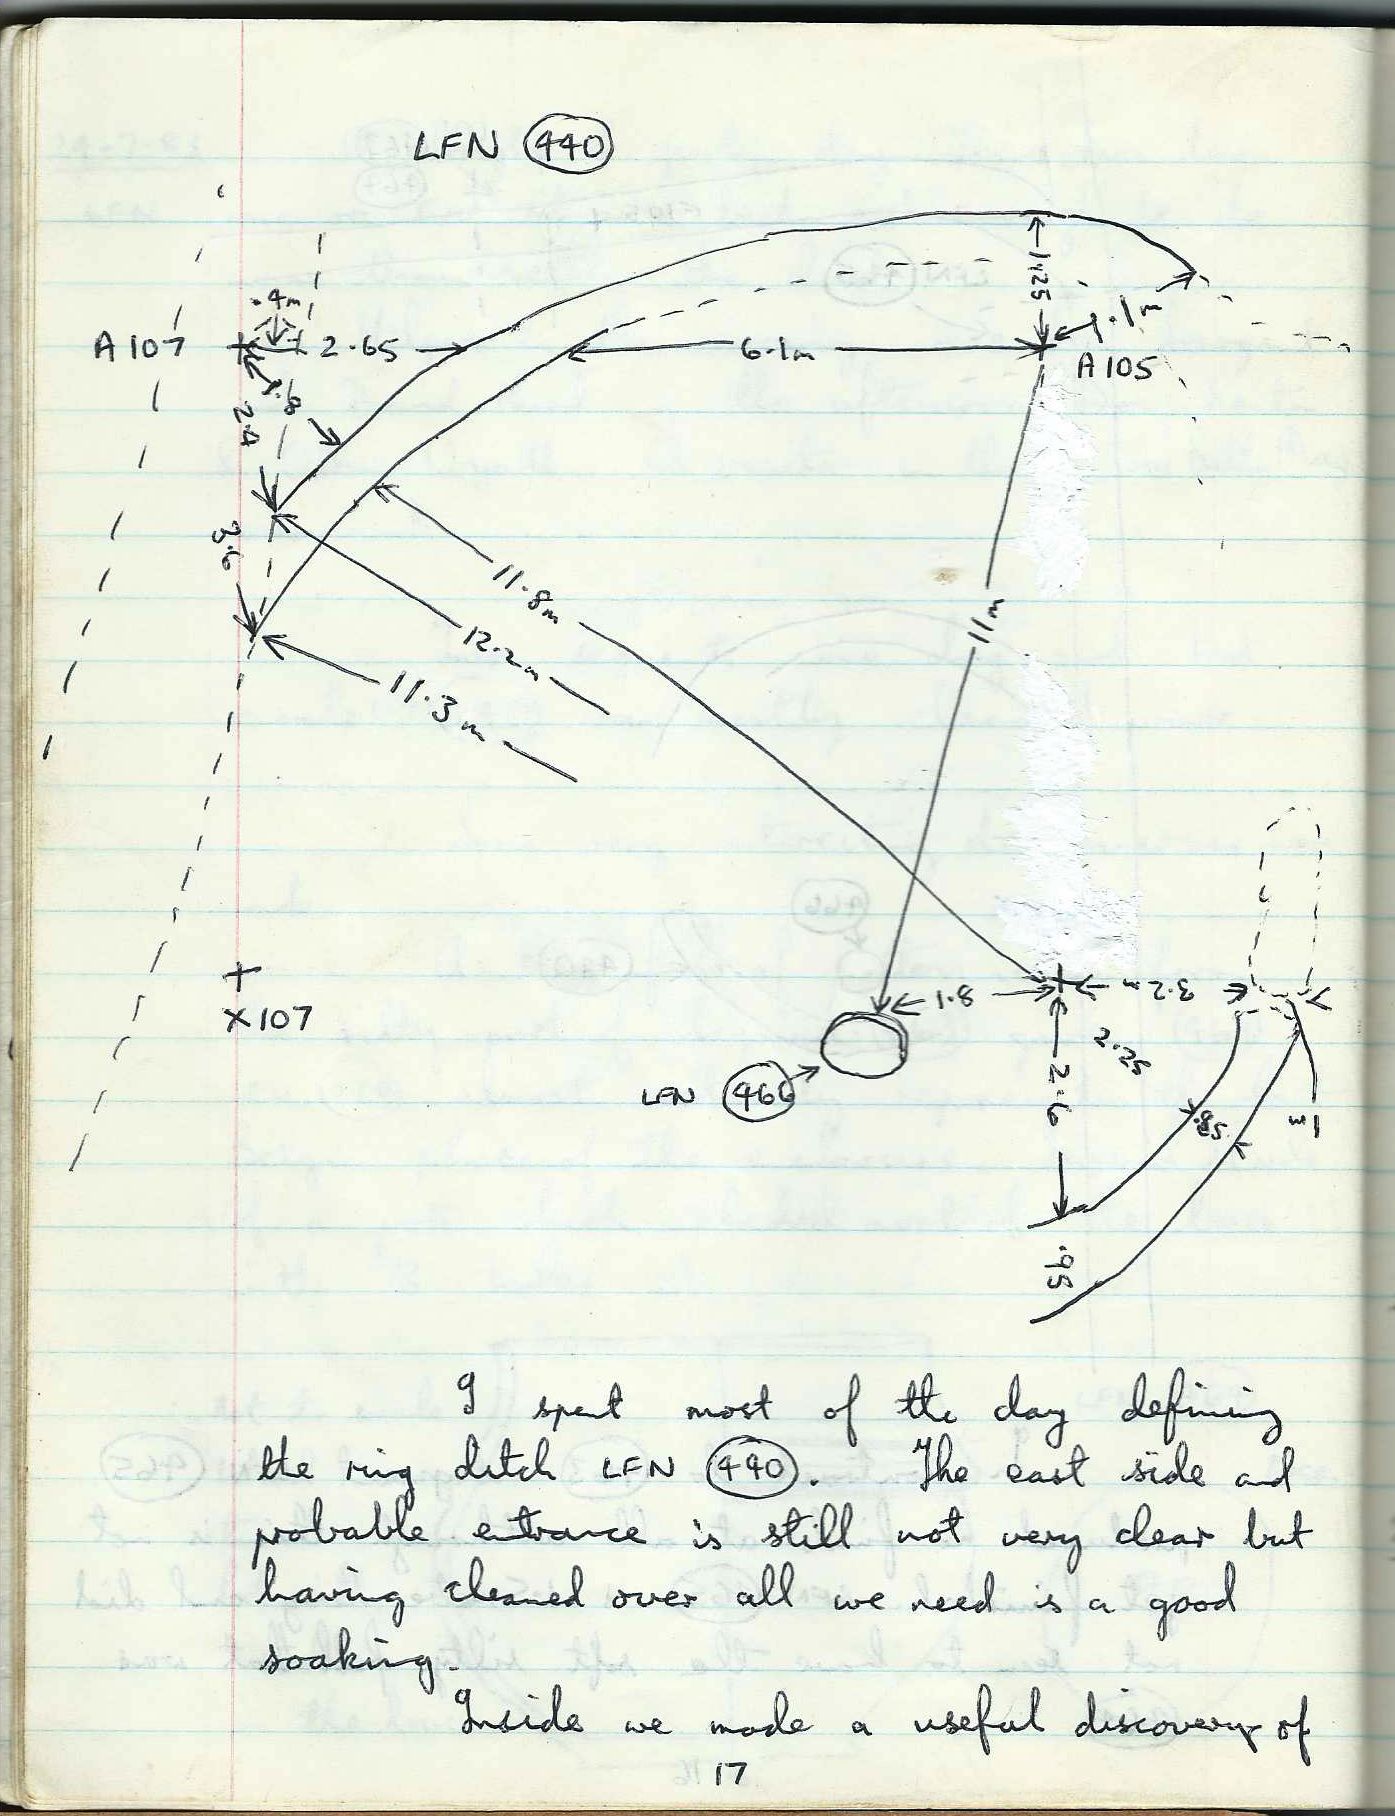 LFN 440
.4m
A 107
2.65
6.1m
1.25
1.1m
A 105
1.8
2.4
3.6
11.8m
12.2m
11.3m
11m
X 107
1.8
2.3m
2.25
2.6
LFN 466
.85
1m
.95
I spent most of the day defining
the ring ditch LFN 440. The east side and
probable entrance is still not very clear but
having cleaned over all we need is a good
soaking.
Inside we made a useful discovery of
17